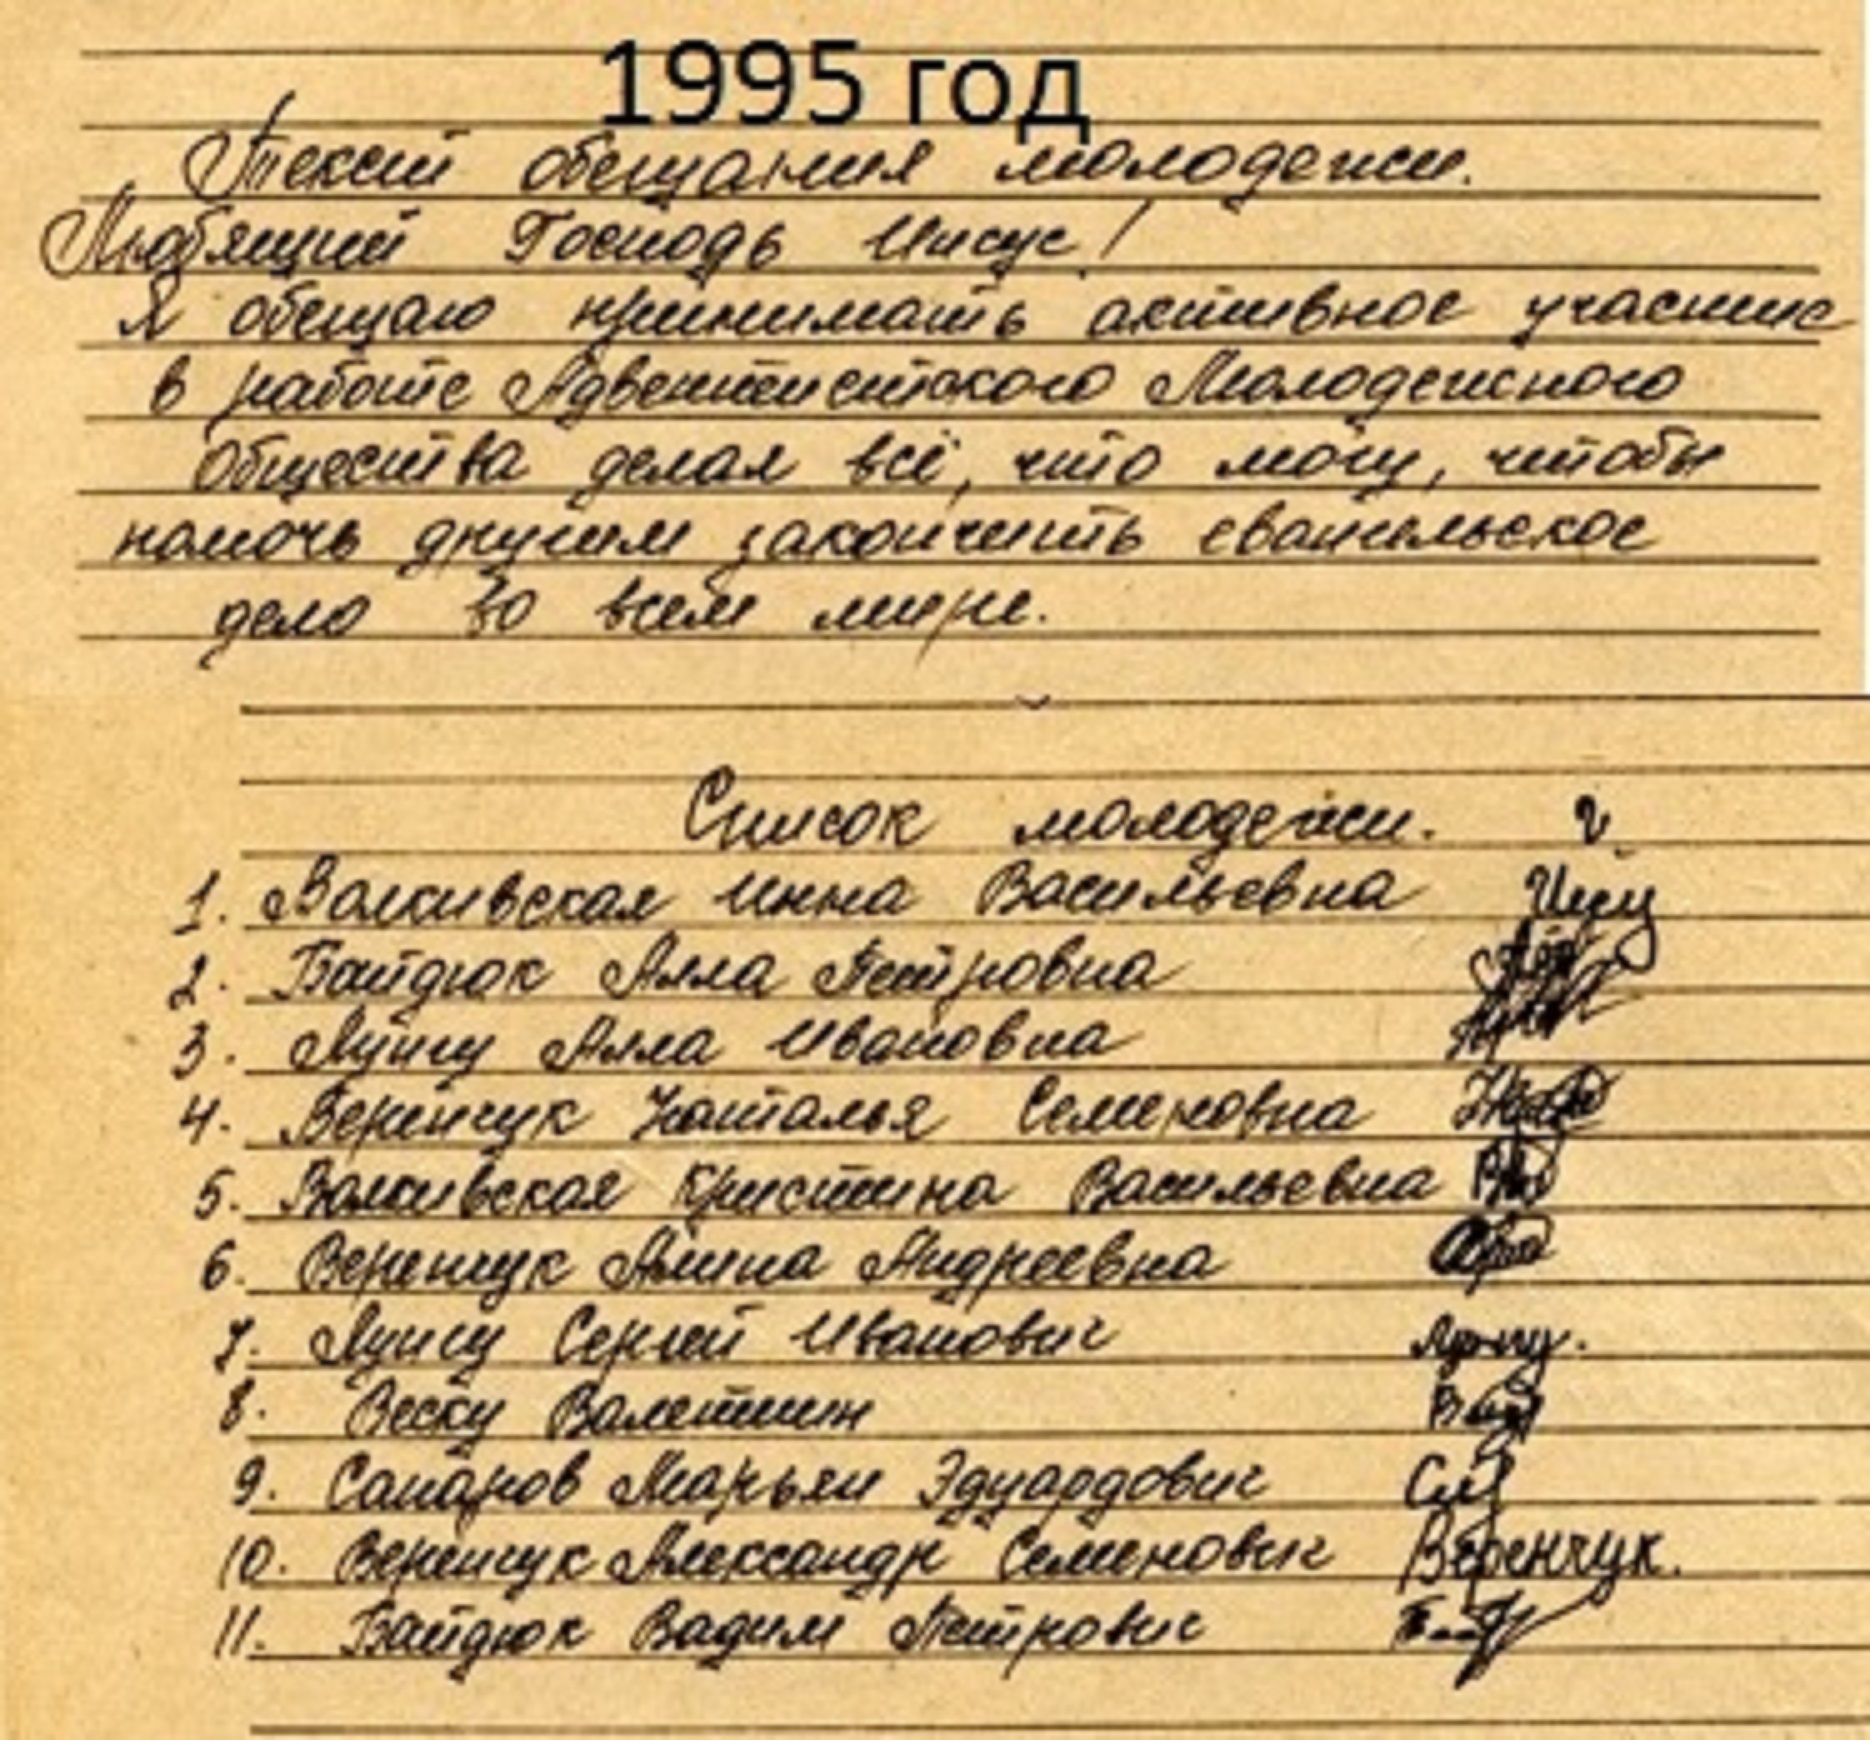 1995 год
Текст обещания молодежи.
Любящий Господь Иисус!
Я обещаю принимать активное участие
в работе Адвентистского Молодежного
Общества делая всё, что могу, чтобы
помочь другим закончить евангельское
дело во всем мире.
Список молодежи.
1. Валкивская Инна Васильевна
2. Байдюк Алла Петровна
3. Лунгу Алла Ивановна
4. Веренчук Наталья Семеновна
5. Валкивская Кристина Васильевна
6. Веренчук Алина Андреевна
7. Лунгу Сергей Иванович
8. Веску Валентин
9. Сапаров Марьян Эдуардович
10. Веренчук Александр Семенович Веренчук.
11. Байдюк Вадим Петрович